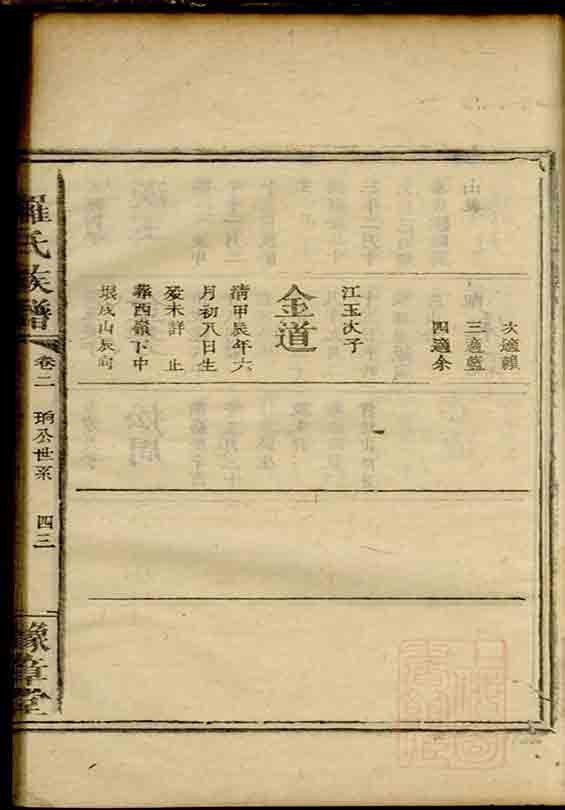 次適賴
三適藍
四適余
江玉次子
金道
清甲辰年六
月初八日生
殁未詳 止
葬西嶺下中
垠戌山辰向
羅氏族譜
卷二 珦公世系 四三
豫章堂